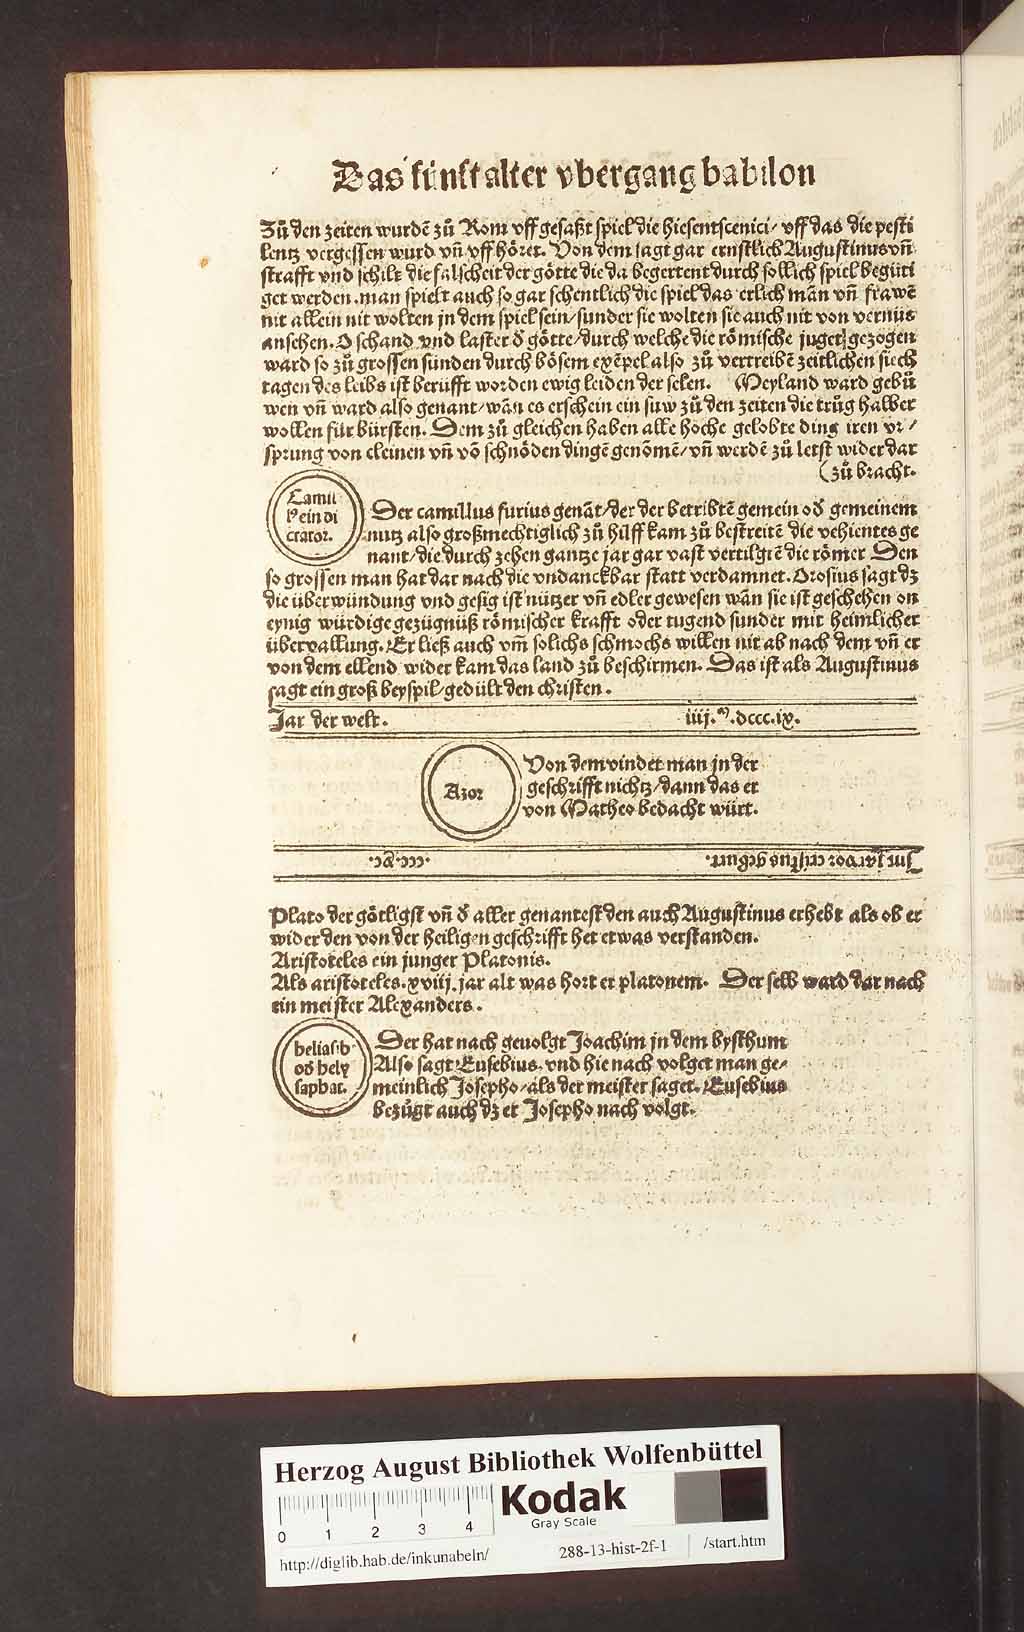 Das fünft alter vbergang babilon
Zů den zeiten wurdē zů Rom vff gesaßt spiel die hiesent scenici / vff das die pesti
lentz vergessen wurd vñ vff höret. Von dem sagt gar ernstlich Augustinus vñ
strafft vnd schilt die falscheit der götte die da begertent durch sollich spiel begüti
get werden. man spielt auch so gar schentlich die spiel das erlich mān vñ frawē
nit allein nit wolten jn dem spiel sein / sunder sie wolten sie auch nit von vernüs
ansehen. O schand vnd laster d̄ götte / durch welche die römische juget gezogen
ward so zů grossen sünden durch bösem exēpel also zů vertreibē zeitlichen siech
tagen des leibs ist berüfft worden ewig leiden der selen. Meyland ward gebů
wen vñ ward also genant / wān es erschein ein suw zů den zeiten die trůg halber
wollen für bürsten. Dem zů gleichen haben alle hoche gelobte ding iren vr /
sprung von cleinen vñ vō schnöden dingē genōmē / vñ werdē zů letst wider dar
(zů bracht.
Camil
lꝰ ein di
ctator.
Der camillus furius genāt / der der betribtē gemein od̄ gemeinem
nutz also großmechtiglich zů hilff kam zů bestreitē die vehientes ge
nant / die durch zehen gantze jar gar vast vertilgtē die römer Den
so grossen man hat dar nach die vndanckbar statt verdamnet. Orosius sagt dz
die überwündung vnd gesig ist nützer vñ edler gewesen wān sie ist geschehen on
eynig würdige gezügnüß römischer krafft oder tugend sunder mit heimlicher
überuallung. Er ließ auch vm̄ solichs schmochs willen nit ab nach dem vñ er
von dem ellend wider kam das land zů beschirmen. Das ist als Augustinus
sagt ein groß beyspil / gedült den christen.
Jar der welt. iiij.ᵐ.dccc.ix.
Azor
Von dem vindet man jn der
geschrifft nichtz / dann das er
von Matheo bedacht würt.
Jm jar vor cristus geburt. .ccc.ꝛc.
Plato der götligst vñ d̄ aller genantest den auch Augustinus erhebt als ob er
wider den von der heiligen geschrifft het etwas verstanden.
Aristoteles ein junger Platonis.
Als aristoteles .xviij. jar alt was hort er platonem. Der selb ward dar nach
ein meister Alexanders.
heliasib
od̄ hely
saphat.
Der hat nach geuolgt Joachim jn dem bysthum
Also sagt Eusebius. vnd hie nach volget man ge/
meinlich Josepho / als der meister saget. Eusebius
bezůgt auch dz er Josepho nach volgt.
Herzog August Bibliothek Wolfenbüttel
Kodak
Gray Scale
0 1 2 3 4
http://diglib.hab.de/inkunabeln/ 288-13-hist-2f-1 /start.htm